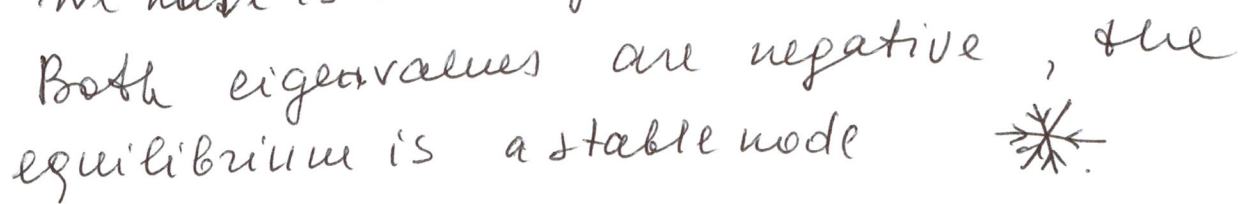 Both eigenvalues are negative, the
equilibrium is a stable node